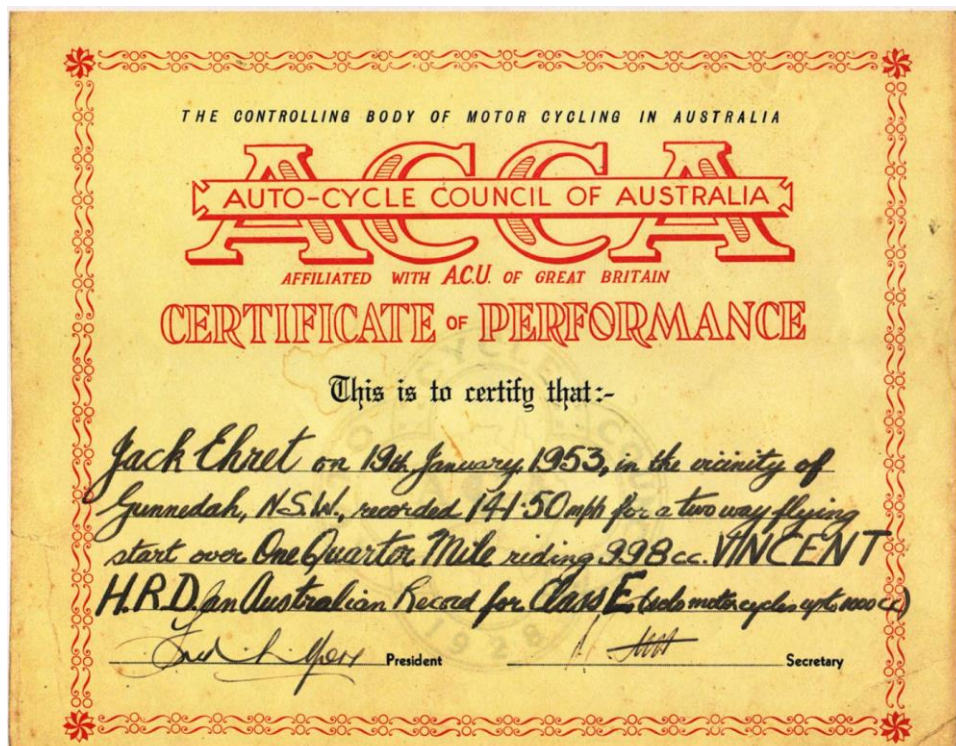 THE CONTROLLING BODY OF MOTOR CYCLING IN AUSTRALIA
ACCA
AUTO-CYCLE COUNCIL OF AUSTRALIA
AFFILIATED WITH A.C.U. OF GREAT BRITAIN
CERTIFICATE OF PERFORMANCE
This is to certify that:-
Jack Ehret on 19th January, 1953, in the vicinity of
Gunnedah, N.S.W., recorded 141·50 mph for a two way flying
start over One Quarter Mile riding 998cc. VINCENT
H.R.D. an Australian Record for Class E (solo motor cycles up to 1000 cc)
President
Secretary
1928